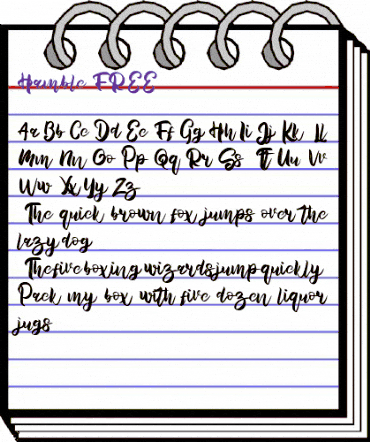 Humble FREE
Aa Bb Cc Dd Ee Ff Gg Hh Ii Jj Kk Ll
Mm Nn Oo Pp Qq Rr Ss Tt Uu Vv
Ww Xx Yy Zz
The quick brown fox jumps over the
lazy dog
The five boxing wizards jump quickly
Pack my box with five dozen liquor
jugs